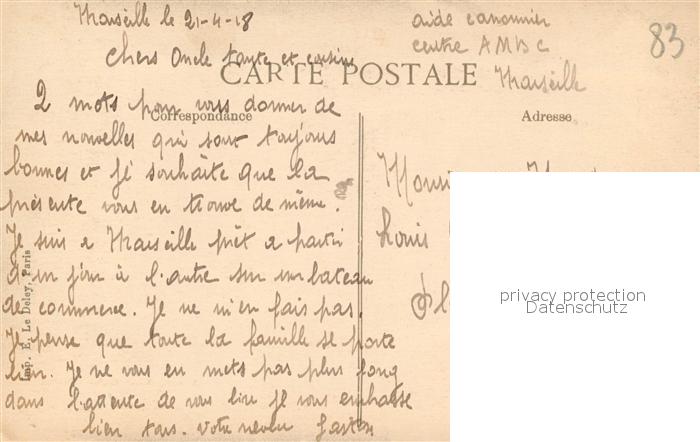 Marseille le 21-4-18
aide canonnier
centre AMBC
Marseille
83
Chers Oncle tante et cousine
CARTE POSTALE
Correspondance
Adresse
2 mots pour vous donner de
mes nouvelles qui sont toujours
bonnes et jé souhaite que la
présente vous en trouve de même.
Je suis a Marseille prêt a partir
d'un jour à l'autre sur un bateau
de commerce. Je ne m'en fais pas.
Je pense que toute la famille se porte
bien. Je ne vous en mets pas plus long
dans l'attente de vous lire je vous embrasse
bien tous. votre neveu Gaston
Louis
Imp. E. Le Deley, Paris
privacy protection
Datenschutz